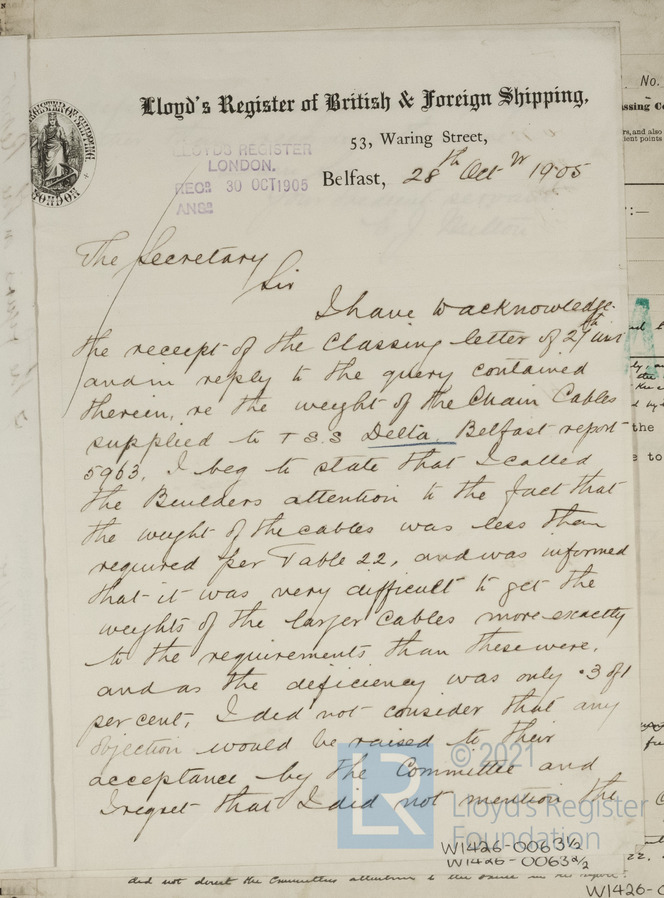 Lloyd's Register of British & Foreign Shipping,
53, Waring Street,
Belfast, 28th Octr 1905
LLOYD'S REGISTER
LONDON.
RECD 30 OCT 1905
ANSD
LONDON
The Secretary
Sir
I have to acknowledge
the receipt of the Classing letter of 27th inst
and in reply to the query contained
therein, re the weight of the Chain Cables
supplied to T S.S Delta Belfast report
5963, I beg to state that I called
the Builders attention to the fact that
the weight of the cables was less than
required per Table 22, and was informed
that it was very difficult to get the
weights of the larger cables more exactly
to the requirements than these were,
and as the deficiency was only .3 of 1
per cent, I did not consider that any
objection would be raised to their
acceptance by the Committee and
I regret that I did not mention the
© 2021
Lloyd's Register
Foundation
LR
W1426-0063 1/2
W1426-0063 2/2
did not direct the Committees attention to the same in
W1426-0
No.
the
22.